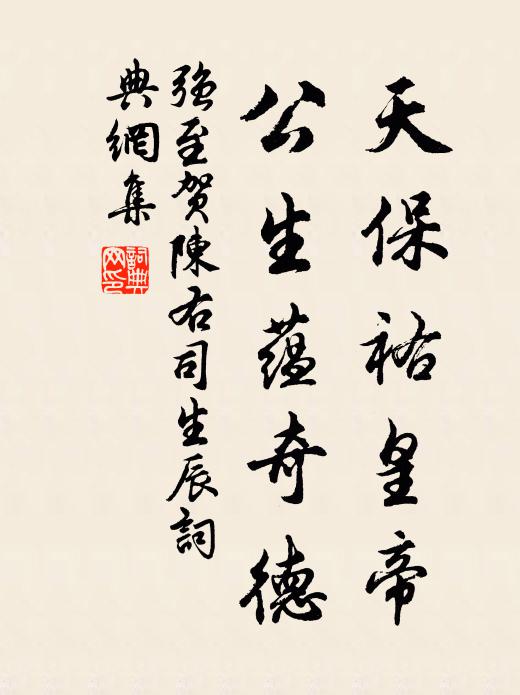 天保祐皇帝
公生蕴奇德
强至贺陳右司生辰詞
典網集
詞典网印